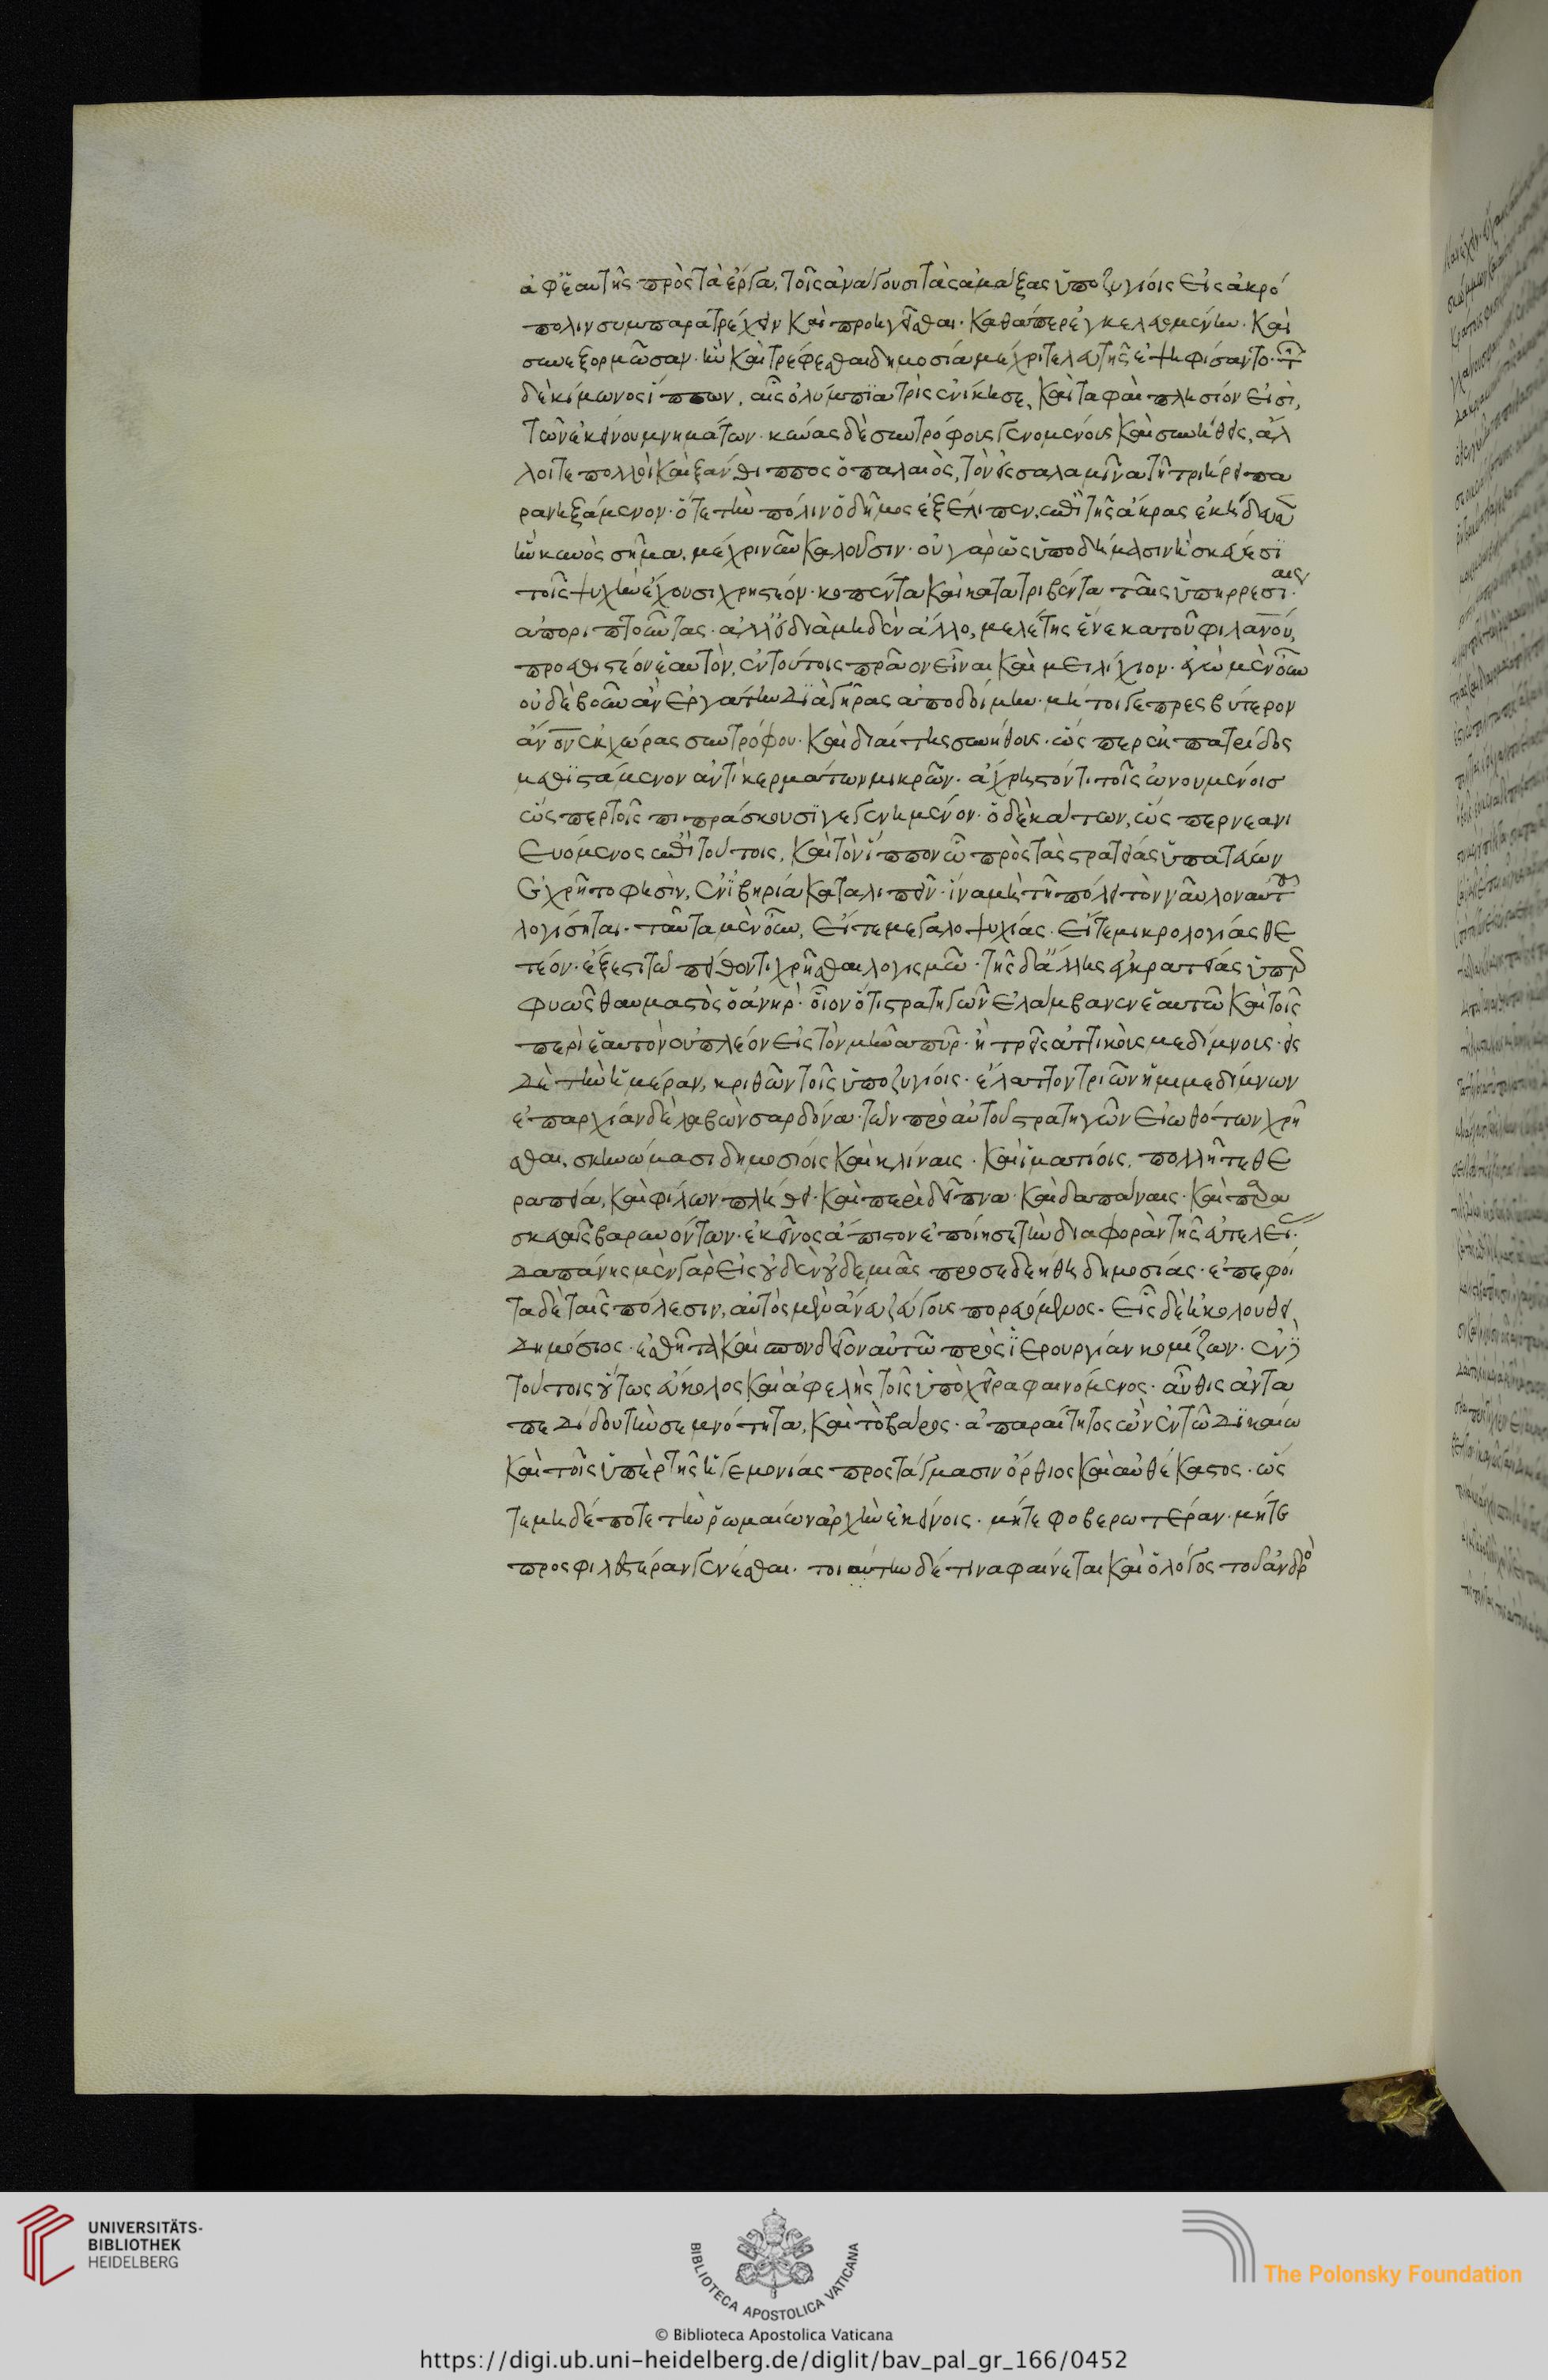 ἀφ' ἑαυτῆς πρὸς τὰ ἔργα, τοῖς ἀνάγουσι τὰς ἁμάξας ὑποζυγίοις εἰς ἀκρό
πολιν συμπαρατρέχειν καὶ προηγεῖσθαι· καθάπερ ἐγκελευομένην· καὶ
συνεξορμῶσαν· ἣν καὶ τρέφεσθαι δημοσίᾳ μέχρι τελευτῆς ἐψηφίσαντο· τῶν
δὲ κίμωνος ἵππων, αἷς ὀλύμπϊα τρὶς ἐνίκησε, καὶ ταφαὶ πλησίον εἰσὶ,
τῶν ἐκείνου μνημάτων· κύνας δὲ συντρόφους γενομένους καὶ συνήθεις, ἄλ
λοι τε πολλοὶ καὶ ξάνθιππος ὁ παλαιὸς, τὸν εἰς σαλαμῖνα τῇ τριήρει πα
ρανηξάμενον· ὅτε τὴν πόλιν ὁ δῆμος ἐξέλιπεν, ἐπὶ τῆς ἄκρας ἐκήδευσεν
ἣν κυνὸς σῆμα, μέχρι νῦν καλοῦσιν· οὐ γὰρ ὡς ὑποδήμασιν ἢ σκεύεσϊ
τοῖς ψυχὴν ἔχουσι χρηστέον· κοπέντα καὶ κατατριβέντα ταῖς ὑπηρρεσίαις·
ἀποριπτοῦντας· ἀλλ' εἰ διὰ μηδὲν ἄλλο, μελέτης ἕνεκα τοῦ φιλανου,
προεθιστέον ἑαυτὸν, ἐν τούτοις πρᾶον εἶναι καὶ μειλίχιον· ἐγὼ μὲν οὖν
οὐδὲ βοῦν ἂν ἐργάτην διὰ γῆρας ἀποδοίμην· μή τοι γε πρεσβύτερον
ἄνον ἐκ χώρας συντρόφου· καὶ διαίτης συνήθους· ὥσπερ ἐκ πατρίδος
μεθϊστάμενον ἀντὶ κερμάτων μικρῶν· ἄχρηστόν τι τοῖς ὠνουμένοισ
ὥσπερ τοῖς πιπράσκουσϊ γεγενημένον· ὁ δὲ κάτων, ὥσπερ νεανι
ευόμενος ἐπὶ τούτοις, καὶ τὸν ἵππον ᾧ πρὸς τὰς στρατείας ὑπατεύων
ἐχρῆτο φησὶν, ἐν ἰβηρία καταλιπεῖν· ἵνα μὴ τῇ πόλει τὸν ναῦλον αὐτοῦ
λογίσηται· ταῦτα μὲν οὖν, εἴτε μεγαλοψυχίας· εἴτε μικρολογίας θε
τέον· ἔξεστι τῷ πείθοντι χρῆσθαι λογισμῷ· τῆς δ' ἄλλης ἐγκρατείας ὑπερ
φυῶς θαυμαστὸς ὁ ἀνήρ· οἷον ὅτι στρατηγῶν ἐλάμβανεν ἑαυτῷ καὶ τοῖς
περὶ ἑαυτὸν οὐ πλέον εἰς τὸν μῆνα πυρ· ἢ τρεῖς ἀττικοὺς μεδίμνους· εἰς
δὲ τὴν ἡμέραν, κριθῶν τοῖς ὑποζυγίοις· ἔλαττον τριῶν ἡμιμεδίμνων
ἐπαρχίαν δὲ λαβὼν σαρδόνα· τῶν πρὸ αὐτοῦ στρατηγῶν εἰωθότων χρῆ
σθαι, σκηνώμασι δημοσίοις καὶ κλίναις· καὶ ἱματίοις, πολλῇ τε θε
ραπεία, καὶ φίλων πλήθει· καὶ περὶ δεῖπνα· καὶ δαπάναις· καὶ παρα
σκευαῖς βαρυνόντων· ἐκεῖνος ἄπιστον ἐποίησε τὴν διαφορὰν τῆς εὐτελεί·
δαπάνης μὲν γὰρ εἰς οὐδὲν οὐδεμιᾶς προσεδεήθη δημοσίας· ἐπεφοί
τα δὲ ταῖς πόλεσιν, αὐτὸς μὲν ἄνευ ζεύγους πορευόμενος· εἷς δὲ ἠκολούθει
δημόσιος· ἐσθῆτα καὶ σπονδεῖον αὐτῷ πρὸς ἱερουργίαν κομίζων· ἐν
τούτοις οὕτως εὔκολος καὶ ἀφελὴς τοῖς ὑπὸ χεῖρα φαινόμενος· αὖθις ἀντα
πεδίδου τὴν σεμνότητα, καὶ τὸ βάρος· ἀπαραίτητος ὢν ἐν τῷ δικαίω
καὶ τοῖς ὑπὲρ τῆς ἡγεμονίας προστάγμασιν ὄρθιος καὶ αὐθέκαστος· ὥς
τε μηδέποτε τὴν ῥωμαίων ἀρχὴν ἐκείνοις· μήτε φοβερωτέραν· μήτε
προσφιλεστέραν γενέσθαι· τοιαύτην δέ τινα φαίνεται καὶ ὁ λόγος τοῦ ἀνδρὸ
UNIVERSITÄTS-
BIBLIOTHEK
HEIDELBERG
BIBLIOTECA APOSTOLICA VATICANA
The Polonsky Foundation
© Biblioteca Apostolica Vaticana
https://digi.ub.uni-heidelberg.de/diglit/bav_pal_gr_166/0452